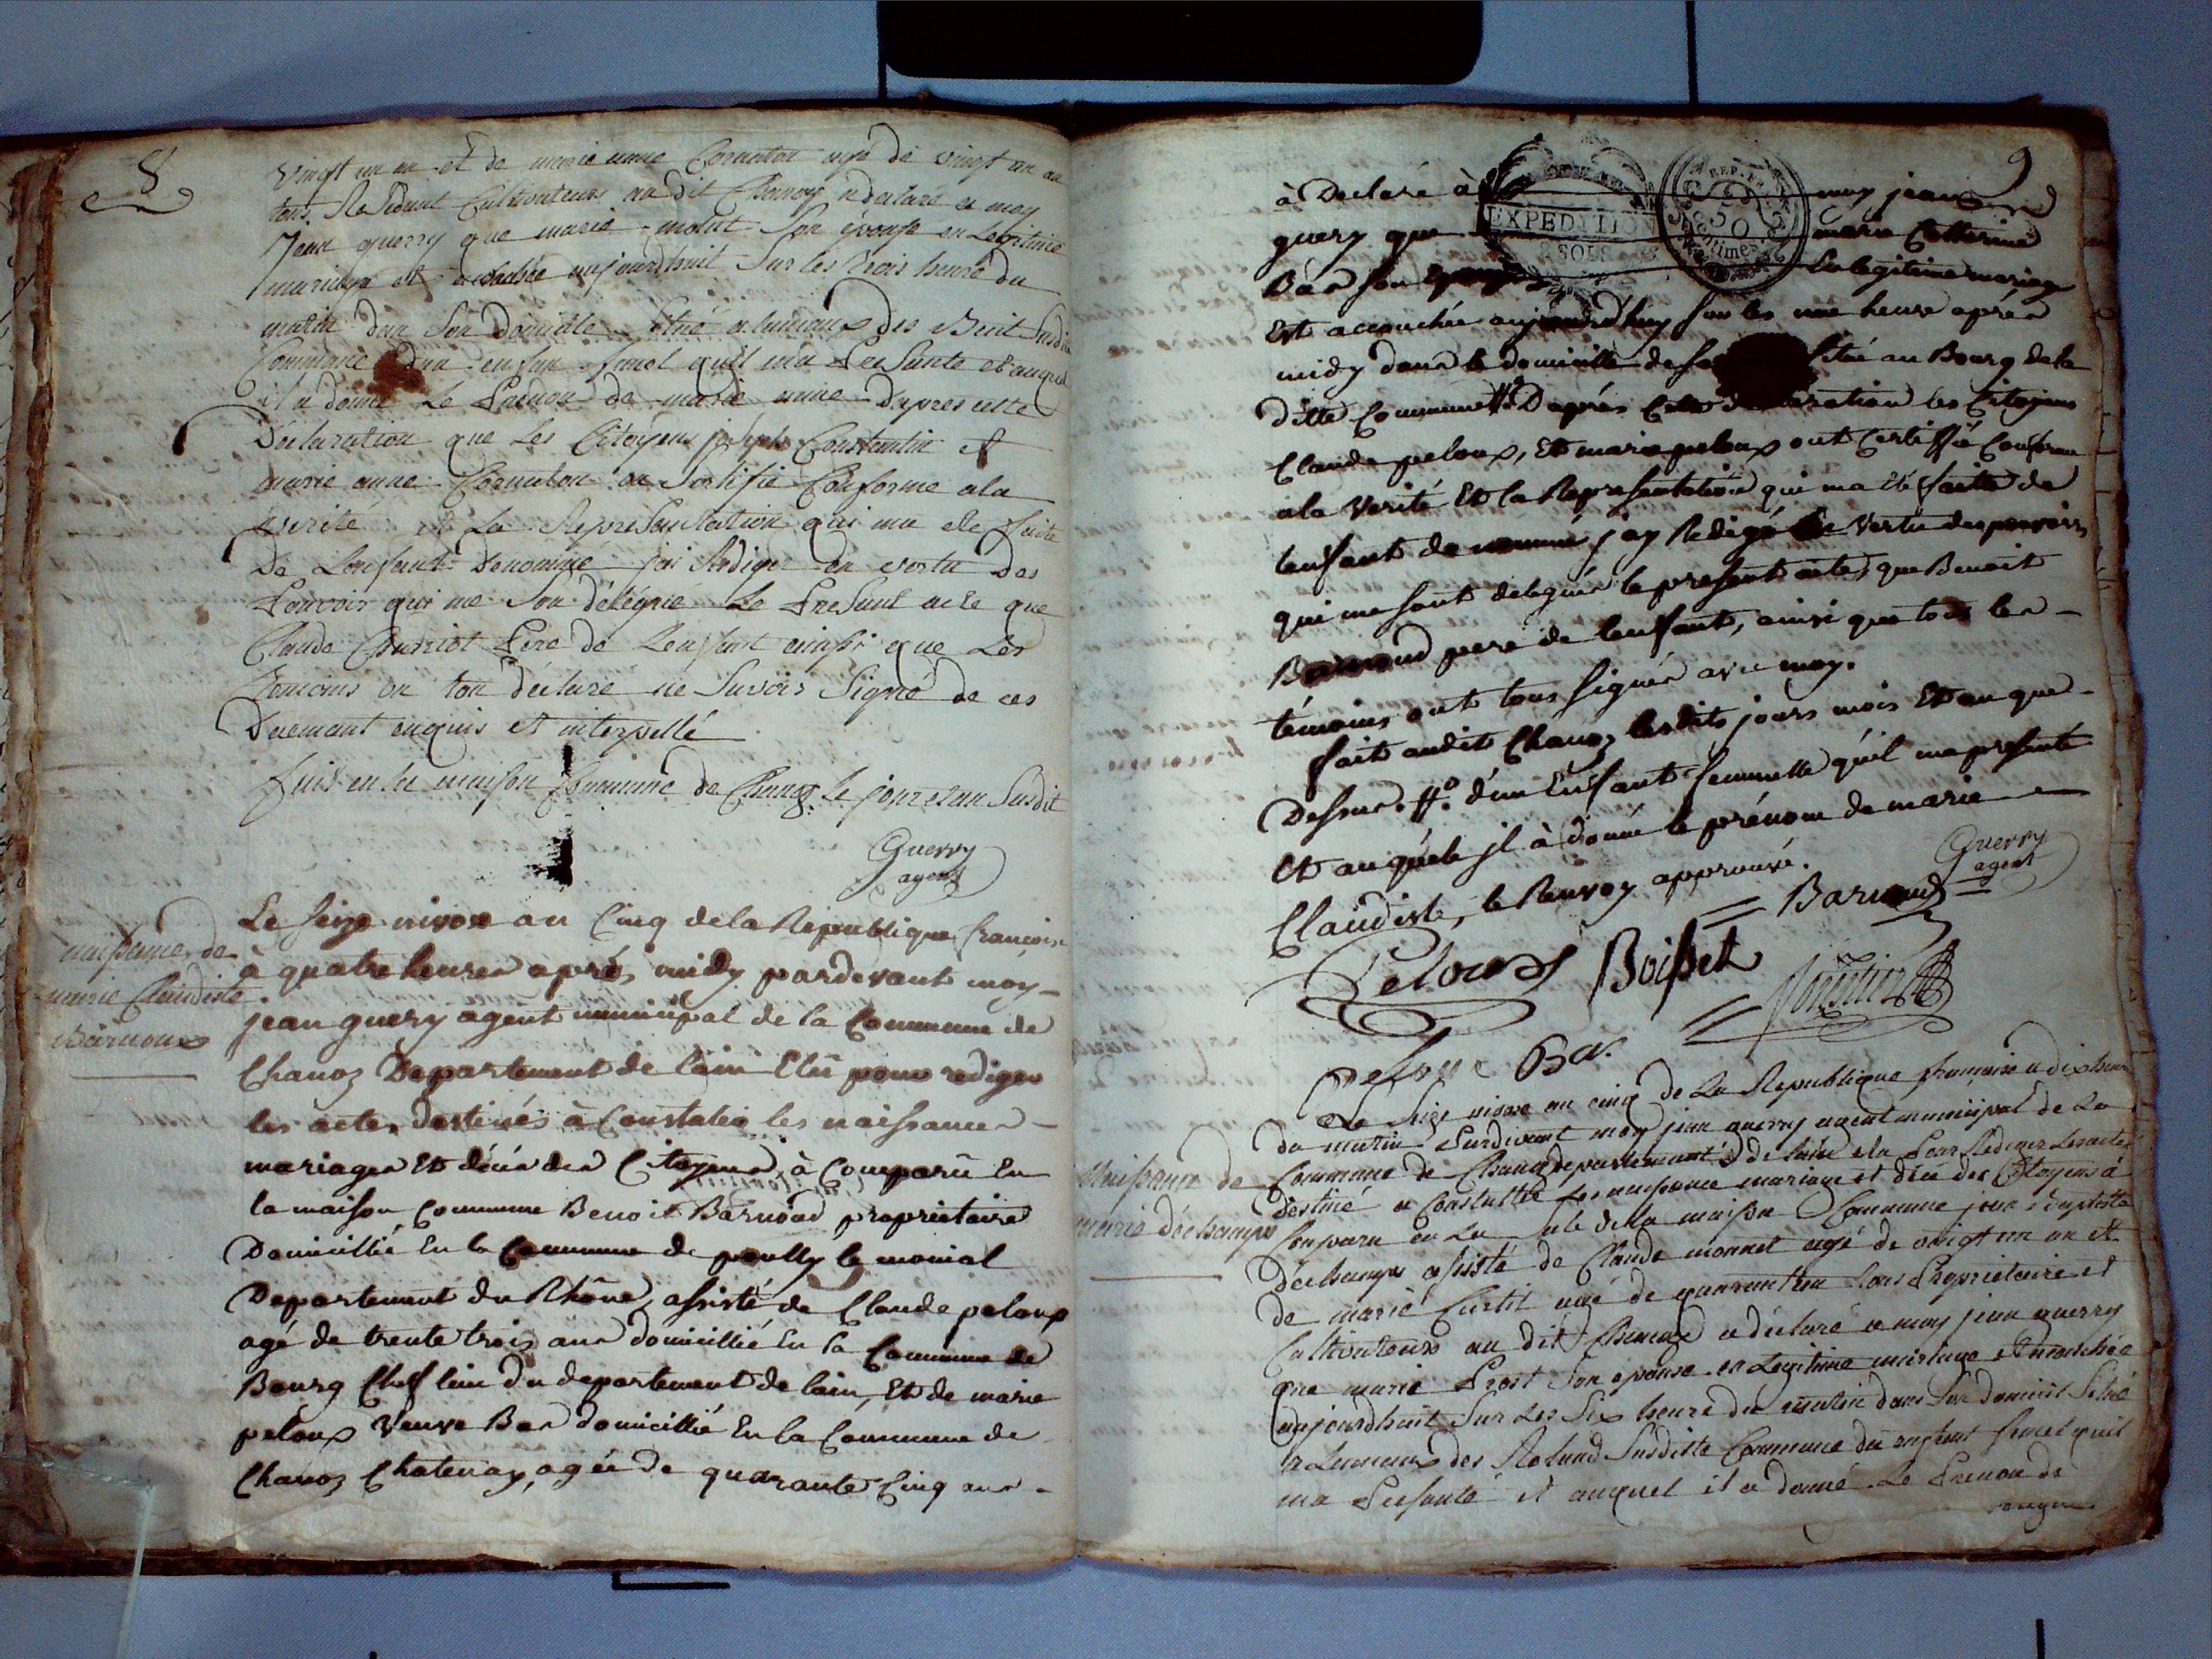 8
vingt un an et de marie anne Cornaton agé de vingt un an
tous Residant Cultivateurs au dit Chanoz a declaré a moy
Jean guerry que marie molut Son épouse en Legitime
mariage est accouchée aujourdhuit Sur les trois heure du
matin dan Son domicille Situé a lumaux des Benit Susdi
Commune dun enfan femel quil ma Presante et auquel
il a donné Le Prenon de marie anne Dapres cette
Declaration que Les Citoyens joseph Constantin et
marie anne Cornaton on Sertifié Conforme a la
verité et La Represantation qui ma ete faite
De Lenfant Denommé jai Rediger en vertu Des
Pouvoir qui me Son délégué Le Presant acte que
Claude Pere de Lenfant ainssi que Les
Temoins on tou déclaré ne Savoir Signé de ces
Duemant enquis et interpellé
fait en la maison Commune de Chanoz le jour et an Susdit
Guerry
agent
naissance de
marie Claudiste
Barnoux
Le Seize nivose an Cinq de la Republique francoise
à quatre heures après midy pardevant moy
jean guery agent municipal de la Commune de
Chanoz Departement de l'ain Elû pour rediger
les actes destinés à Constater les naissances
mariages Et décès des Citoyens, à Comparû En
la maison Commune Benoit Barnoud propriétaire
Domicillié En la Commune de poully le monial
Departement du Rhône, assisté de Claude peloux
agé de trente trois ans domicillié En la Commune de
Bourg Chef lieu du departement de lain, Et de marie
peloux Veuve Bar domicillié En la Commune de
Chanoz Chatenay, agée de quarante Cinq ans
9
à Declaré à moy jean
guery que marie Catherine
Bar son Epouse En legitime mariage
Est accouchée aujourd'huy sur les une heure après
midy dans le domicille de sa Situé au Bourg de la
ditte Commune # D'après Cette declaration les Citoyens
Claude peloux, Et marie peloux ont Certiffié Conforme
a la Verité Et la Representation qui ma été faitte de
lenfant denommé j'ay Redigé En Vertu des pouvoirs
qui me sont delegués le present acte, que Benoit
Barnoud pere de l'enfant, ainsi que tous les
témoins ont tous signés avec moy.
fait audit Chanoz lesdits jours mois Et an que
Dessus. # d'un Enfant femmelle qu'il ma presenté
Et auquel il à donné le prénom de marie
Claudiste, le Renvoy approuvé.
Guerry
agent
Barnoud
Peloux Boisset
Peloux Bar
EXPEDITION
REP. FR.
50
Centimes
naissance de
marie dechamps
Le Seize nivose an cinq de La Republique francaise a dix heure
du matin Pardevant moy jean guerry agent municipal de La
Commune de Chanoz departemant de lain elu Pour Rediger Les actes
destiné a Constatter Les naissance mariage et décé des Citoyens à
Comparu en La Sale de la maison Commune jean Baptiste
dechamps assisté de Claude monnet agé de vingt un an et
de marie Curtit agé de quarante un tous Propriétaire et
Cultivateurs au dit Chanoz a déclaré a moy jean guerry
que marie Prost Son epouse en Legitime mariage et accouchée
aujourdhuit Sur Les Six heure du matin dans Son domicil Situé
a Lumaux des Roland Susditte Commune du enfant femel quil
ma Presanté et auquel il a donné Le Prenon de